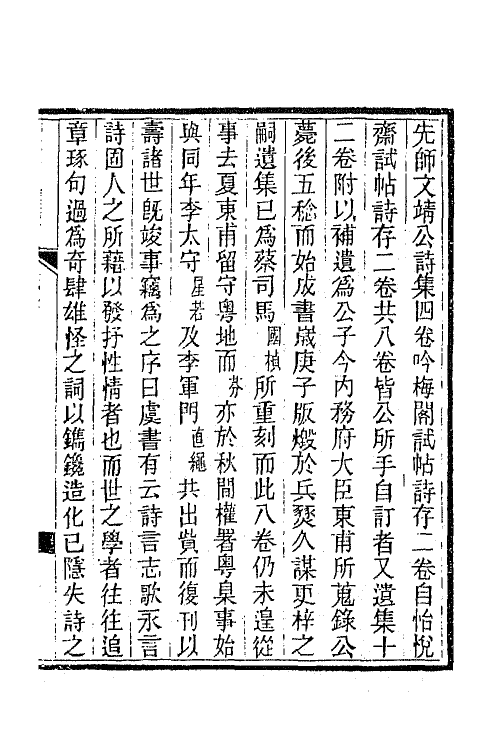 先師文靖公詩集四卷吟梅閣試帖詩存二卷自怡悅
齋試帖詩存二卷共八卷皆公所手自訂者又遺集十
二卷附以補遺爲公子今內務府大臣東甫所蒐錄公
薨後五稔而始成書歲庚子版燬於兵燹久謀更梓之
嗣遺集已爲蔡司馬國楨所重刻而此八卷仍未遑從
事去夏東甫留守粵地而芬亦於秋間權署粵臬事始
與同年李太守星若及李軍門直繩共出貲而復刊以
壽諸世旣竣事竊爲之序曰虞書有云詩言志歌永言
詩固人之所藉以發抒性情者也而世之學者往往追
章琢句過爲奇肆雄怪之詞以鐫鑱造化已隱失詩之